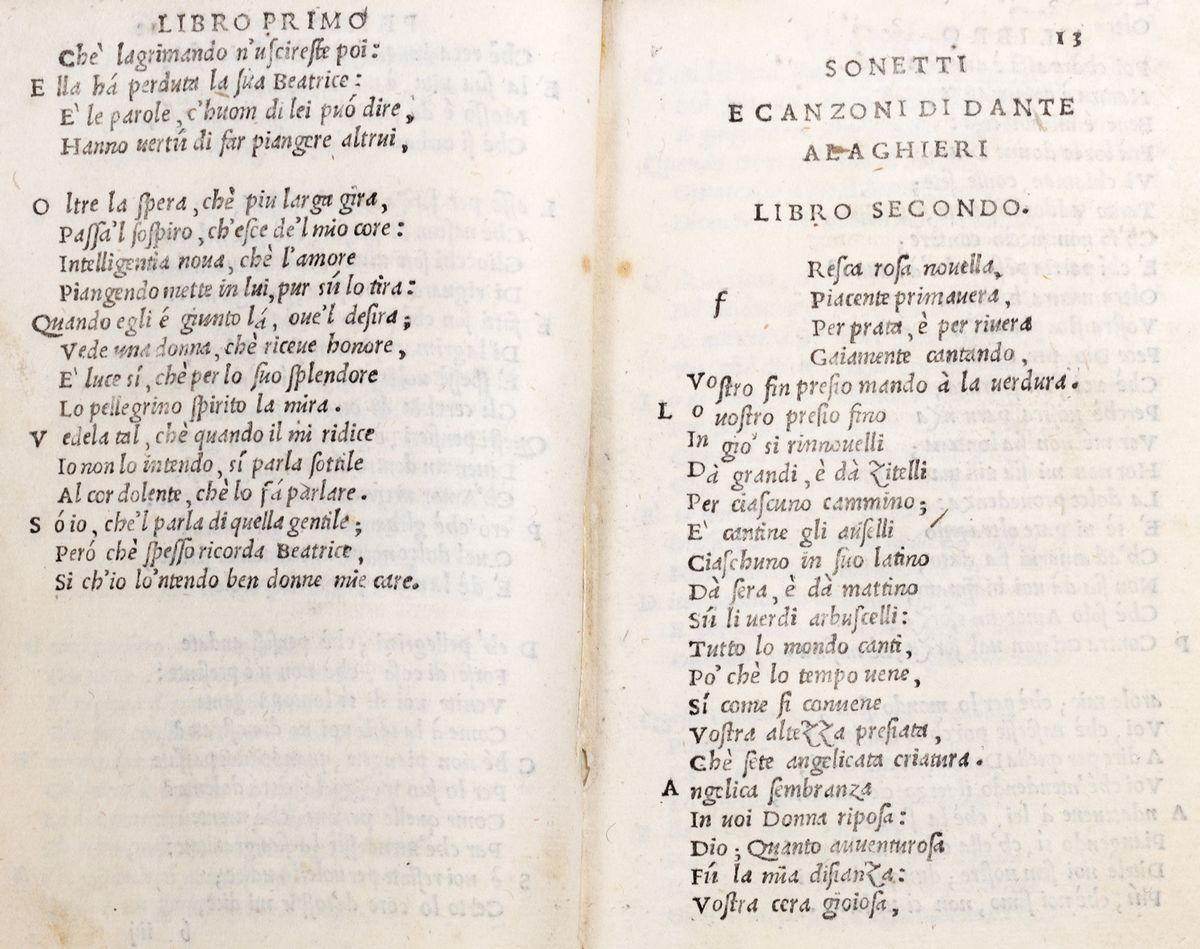 LIBRO PRIMO
Chè lagrimando n'uſcireſte poi:
E lla há perduta la ſua Beatrice:
E' le parole, c'huom di lei puó dire,
Hanno uertú di far piangere altrui,
O ltre la ſpera, chè piu larga gira,
Paſſa'l ſoſpiro, ch'eſce de'l mio core:
Intelligentia noua, chè l'amore
Piangendo mette in lui, pur sú lo tira:
Quando egli é giunto lá, oue'l deſira;
Vede una donna, chè riceue honore,
E' luce sí, chè per lo ſuo ſplendore
Lo pellegrino ſpirito la mira.
V edela tal, chè quando il mi ridice
Io non lo intendo, sí parla ſottile
Al cor dolente, chè lo fá parlare.
S ó io, che'l parla di quella gentile;
Peró chè ſpeſſo ricorda Beatrice,
Si ch'io lo'ntendo ben donne mie care.
13
SONETTI
E CANZONI DI DANTE
ALAGHIERI
LIBRO SECONDO.
f Reſca roſa nouella,
Piacente primauera,
Per prata, è per riuera
Gaiamente cantando,
Voſtro fin preſio mando à la uerdura.
L o uoſtro preſio fino
In gio' si rinnouelli
Dà grandi, è dà Zitelli
Per ciaſcuno cammino;
E' cantine gli auſelli
Ciaſchuno in ſuo latino
Dà ſera, è dà mattino
Sú li uerdi arbuſcelli:
Tutto lo mondo canti,
Po' chè lo tempo uene,
Sí come ſi conuene
Voſtra alteZZa preſiata,
Chè ſete angelicata criatura.
A ngelica ſembranza
In uoi Donna ripoſa:
Dio; Quanto auuenturoſa
Fú la mia diſianZa:
Voſtra cera gioioſa,